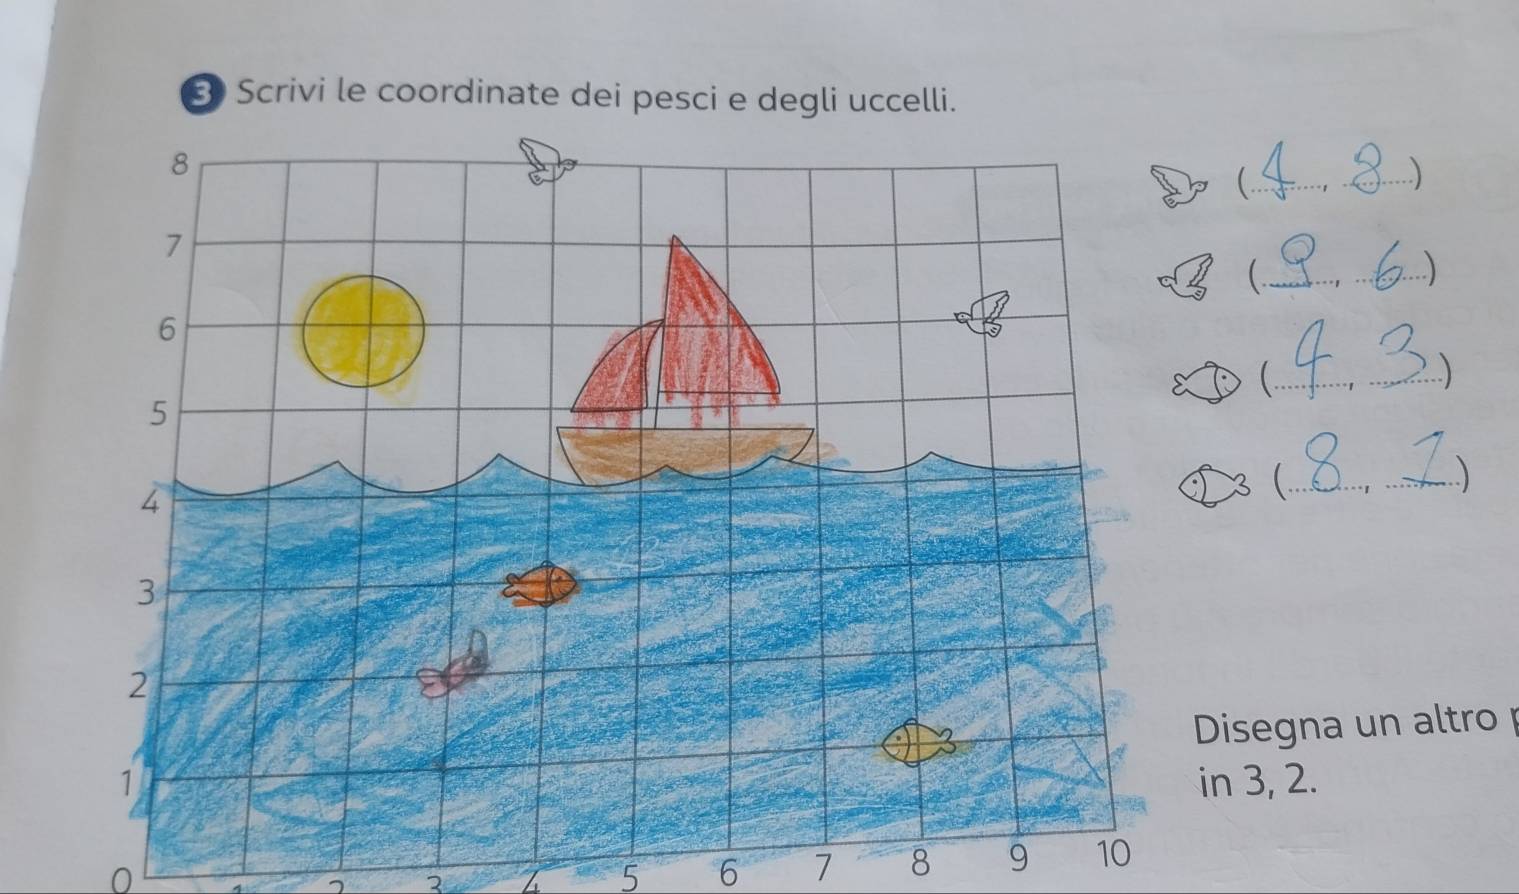 3 Scrivi le coordinate dei pesci e degli uccelli.
8
7
6
5
4
3
2
1
0
1 2 3 4 5 6 7 8 9 10
(4, 8)
(9, 6)
(4, 3)
(8, 1)
Disegna un altro
in 3, 2.